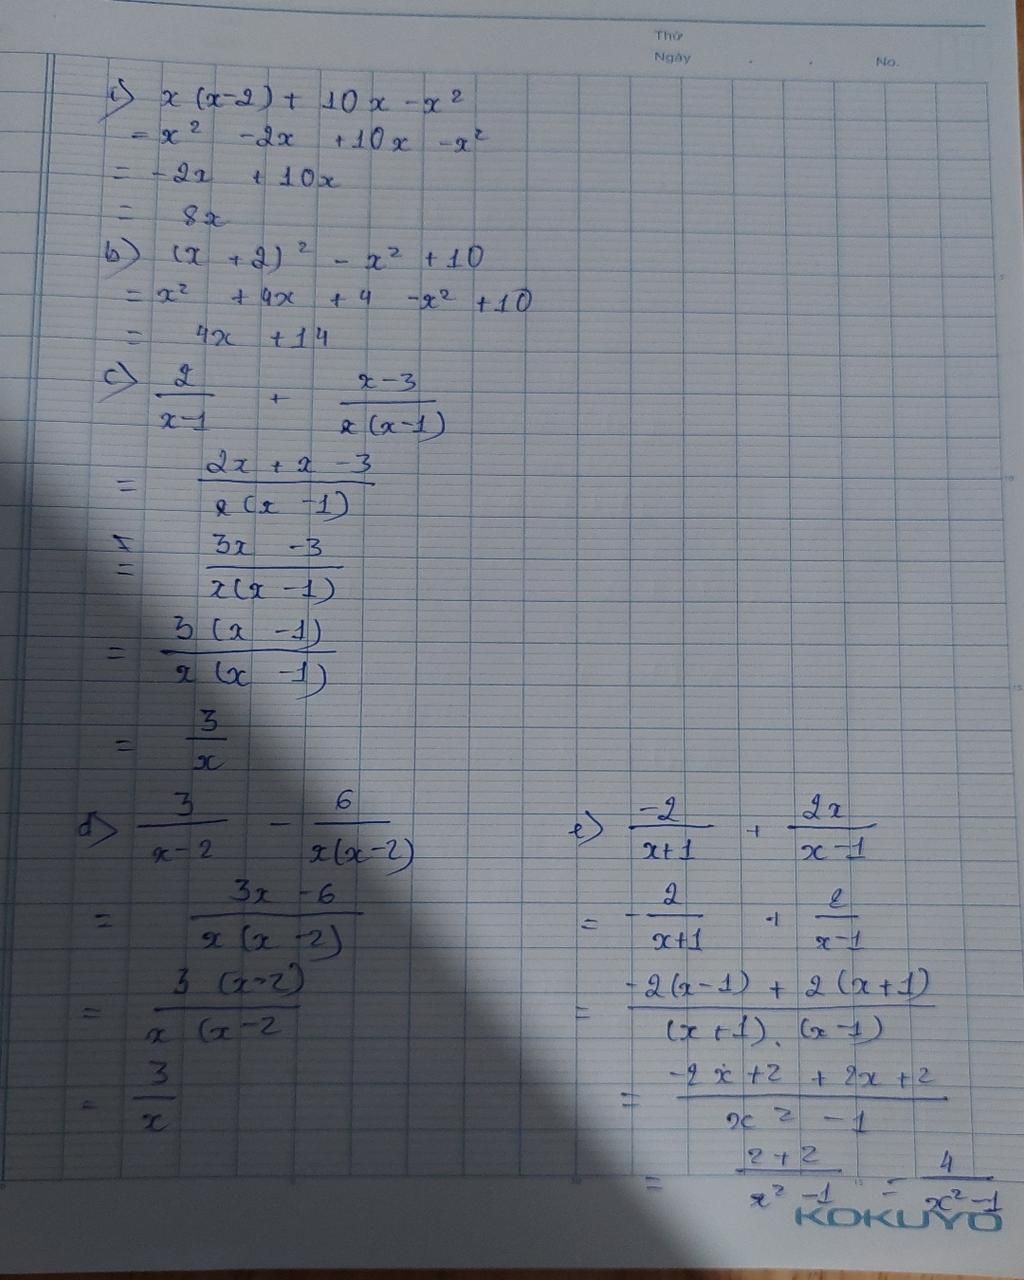 Thứ
Ngày . . No.
a) x(x-2) + 10x - x²
= x² - 2x + 10x - x²
= -2x + 10x
= 8x
b) (x + 2)² - x² + 10
= x² + 4x + 4 - x² + 10
= 4x + 14
c) 2/(x-1) + (x-3)/(x(x-1))
= (2x + x - 3)/(x(x - 1))
= (3x - 3)/(x(x - 1))
= 3(x - 1)/(x(x - 1))
= 3/x
d) 3/(x-2) - 6/(x(x-2))
= (3x - 6)/(x(x - 2))
= 3(x-2)/(x(x-2
= 3/x
e) -2/(x+1) + 2x/(x-1)
= -2/(x+1) + 2/(x-1)
= (-2(x-1) + 2(x+1))/((x+1).(x-1))
= (-2x + 2 + 2x + 2)/(x² - 1)
= (2+2)/(x² - 1) = 4/(x² - 1)
KOKUYO